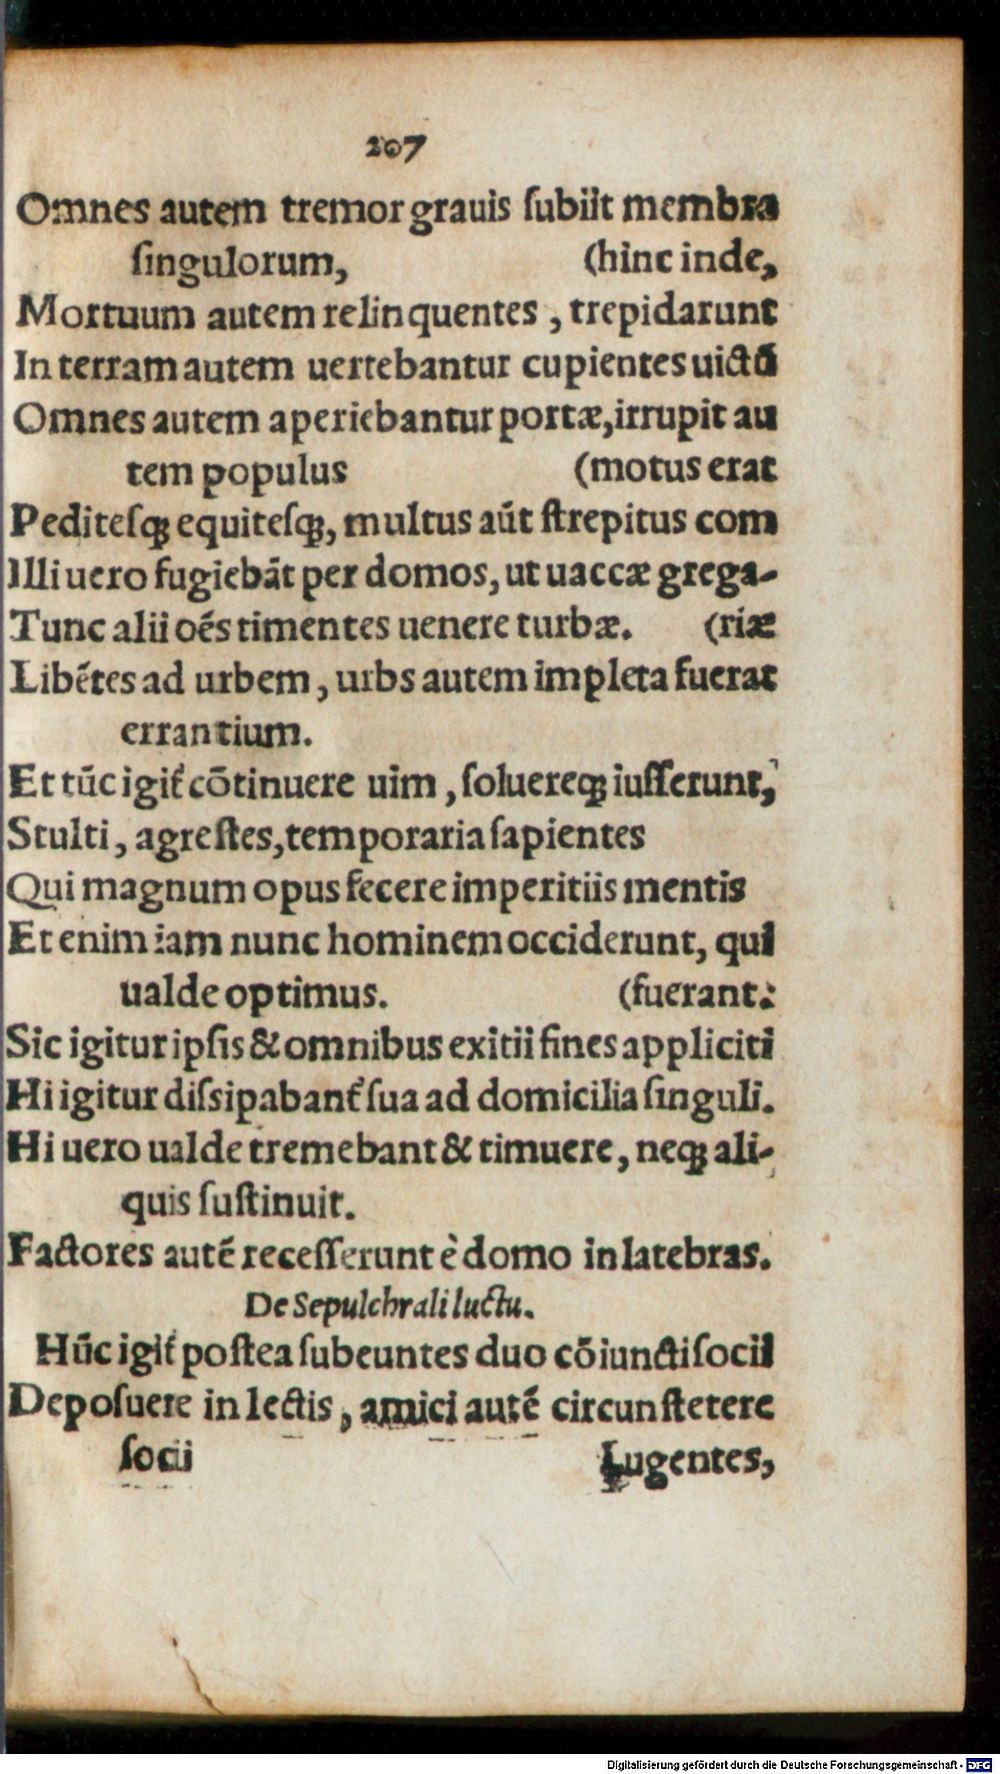 207
Omnes autem tremor grauis ſubiit membra
ſingulorum, (hinc inde,
Mortuum autem relinquentes, trepidarunt
In terram autem uertebantur cupientes uictũ
Omnes autem aperiebantur portæ, irrupit au
tem populus (motus erat
Peditesq̃ equitesq̃, multus aũt ſtrepitus com
Illi uero fugiebãt per domos, ut uaccæ grega-
Tunc alii oẽs timentes uenere turbæ. (riæ
Libẽtes ad urbem, urbs autem impleta fuerat
errantium.
Et tũc igit᷑ cõtinuere uim, ſoluereq̃ iuſſerunt,
Stulti, agreſtes, temporaria ſapientes
Qui magnum opus fecere imperitiis mentis
Et enim iam nunc hominem occiderunt, qui
ualde optimus. (fuerant:
Sic igitur ipſis & omnibus exitii fines appliciti
Hi igitur diſsipabant᷑ ſua ad domicilia ſinguli.
Hi uero ualde tremebant & timuere, neq̃ ali-
quis ſuſtinuit.
Factores autẽ receſſerunt è domo in latebras.
De Sepulchrali luctu.
Hũc igit᷑ poſtea ſubeuntes duo cõiuncti ſocii
Depoſuere in lectis, amici autẽ circunſtetere
ſocii Lugentes,
Digitalisierung gefördert durch die Deutsche Forschungsgemeinschaft - DFG